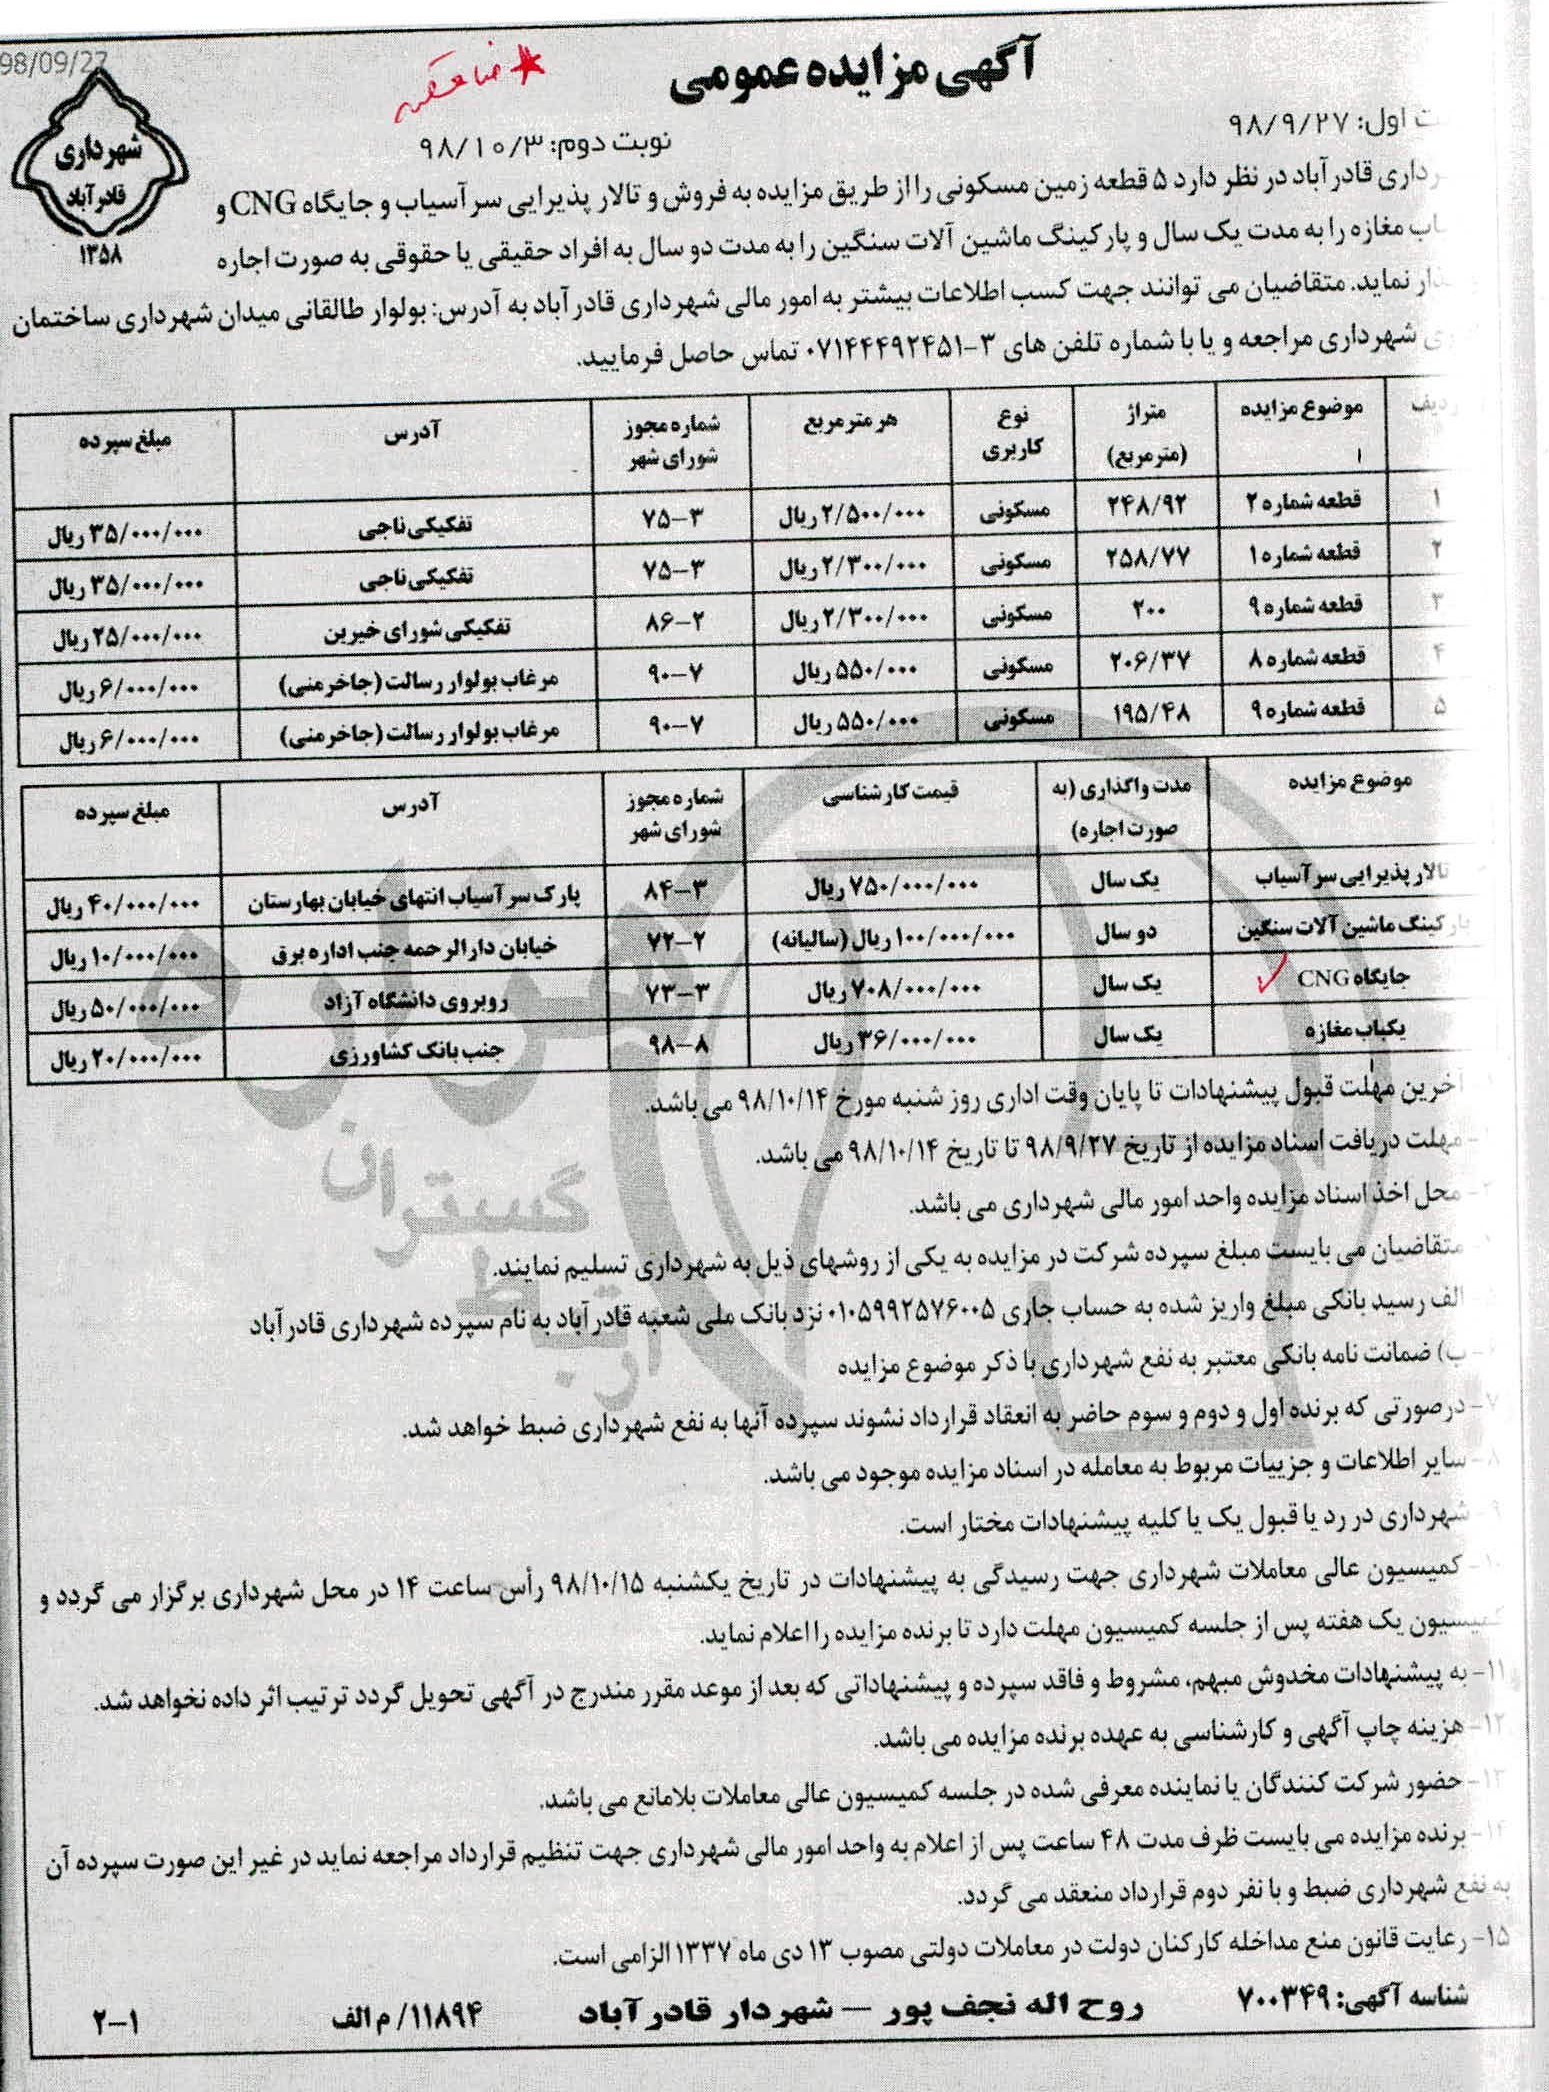 98/09/27
آگهی مزایده عمومی
اول: ۹۸/۹/۲۷
نوبت دوم: ۹۸/۱۰/۳
شهرداری
قادرآباد
۱۳۵۸
قادرآباد در نظر دارد ۵ قطعه زمین مسکونی را از طریق مزایده به فروش و تالار پذیرایی سرآسیاب و جایگاه CNG و
مغازه را به مدت یک سال و پارکینگ ماشین آلات سنگین را به مدت دو سال به افراد حقیقی یا حقوقی به صورت اجاره
نماید. متقاضیان می توانند جهت کسب اطلاعات بیشتر به امور مالی شهرداری قادرآباد به آدرس: بولوار طالقانی میدان شهرداری ساختمان
شهرداری مراجعه و یا با شماره تلفن های ۳-۰۷۱۴۴۴۹۲۴۵۱ تماس حاصل فرمایید.
موضوع مزایده متراژ (مترمربع) نوع کاربری هر مترمربع شماره مجوز شورای شهر آدرس مبلغ سپرده
۱ قطعه شماره ۲ ۲۴۸/۹۲ مسکونی ۲/۵۰۰/۰۰۰ ریال ۷۵-۳ تفکیکی ناجی ۳۵/۰۰۰/۰۰۰ ریال
۲ قطعه شماره ۱ ۲۵۸/۷۷ مسکونی ۲/۳۰۰/۰۰۰ ریال ۷۵-۳ تفکیکی ناجی ۳۵/۰۰۰/۰۰۰ ریال
۳ قطعه شماره ۹ ۲۰۰ مسکونی ۲/۳۰۰/۰۰۰ ریال ۸۶-۲ تفکیکی شورای خیرین ۲۵/۰۰۰/۰۰۰ ریال
۴ قطعه شماره ۸ ۲۰۶/۳۷ مسکونی ۵۵۰/۰۰۰ ریال ۹۰-۷ مرغاب بولوار رسالت (جاخرمنی) ۶/۰۰۰/۰۰۰ ریال
۵ قطعه شماره ۹ ۱۹۵/۴۸ مسکونی ۵۵۰/۰۰۰ ریال ۹۰-۷ مرغاب بولوار رسالت (جاخرمنی) ۶/۰۰۰/۰۰۰ ریال
موضوع مزایده مدت واگذاری (به صورت اجاره) قیمت کارشناسی شماره مجوز شورای شهر آدرس مبلغ سپرده
تالار پذیرایی سرآسیاب یک سال ۷۵۰/۰۰۰/۰۰۰ ریال ۸۴-۳ پارک سرآسیاب انتهای خیابان بهارستان ۴۰/۰۰۰/۰۰۰ ریال
پارکینگ ماشین آلات سنگین دو سال ۱۰۰/۰۰۰/۰۰۰ ریال (سالیانه) ۷۲-۲ خیابان دارالرحمه جنب اداره برق ۱۰/۰۰۰/۰۰۰ ریال
جایگاه CNG یک سال ۷۰۸/۰۰۰/۰۰۰ ریال ۷۳-۳ روبروی دانشگاه آزاد ۵۰/۰۰۰/۰۰۰ ریال
یکباب مغازه یک سال ۳۶/۰۰۰/۰۰۰ ریال ۹۸-۸ جنب بانک کشاورزی ۲۰/۰۰۰/۰۰۰ ریال
آخرین مهلت قبول پیشنهادات تا پایان وقت اداری روز شنبه مورخ ۹۸/۱۰/۱۴ می باشد.
مهلت دریافت اسناد مزایده از تاریخ ۹۸/۹/۲۷ تا تاریخ ۹۸/۱۰/۱۴ می باشد.
محل اخذ اسناد مزایده واحد امور مالی شهرداری می باشد.
متقاضیان می بایست مبلغ سپرده شرکت در مزایده به یکی از روشهای ذیل به شهرداری تسلیم نمایند.
الف رسید بانکی مبلغ واریز شده به حساب جاری ۰۱۰۵۹۹۲۵۷۶۰۰۵ نزد بانک ملی شعبه قادرآباد به نام سپرده شهرداری قادرآباد
ب) ضمانت نامه بانکی معتبر به نفع شهرداری با ذکر موضوع مزایده
۷- درصورتی که برنده اول و دوم و سوم حاضر به انعقاد قرارداد نشوند سپرده آنها به نفع شهرداری ضبط خواهد شد.
۸- سایر اطلاعات و جزییات مربوط به معامله در اسناد مزایده موجود می باشد.
شهرداری در رد یا قبول یک یا کلیه پیشنهادات مختار است.
۱۰- کمیسیون عالی معاملات شهرداری جهت رسیدگی به پیشنهادات در تاریخ یکشنبه ۹۸/۱۰/۱۵ رأس ساعت ۱۴ در محل شهرداری برگزار می گردد و
کمیسیون یک هفته پس از جلسه کمیسیون مهلت دارد تا برنده مزایده را اعلام نماید.
۱۱- به پیشنهادات مخدوش مبهم، مشروط و فاقد سپرده و پیشنهاداتی که بعد از موعد مقرر مندرج در آگهی تحویل گردد ترتیب اثر داده نخواهد شد.
۱۲- هزینه چاپ آگهی و کارشناسی به عهده برنده مزایده می باشد.
۱۳- حضور شرکت کنندگان یا نماینده معرفی شده در جلسه کمیسیون عالی معاملات بلامانع می باشد.
۱۴- برنده مزایده می بایست ظرف مدت ۴۸ ساعت پس از اعلام به واحد امور مالی شهرداری جهت تنظیم قرارداد مراجعه نماید در غیر این صورت سپرده آن
به نفع شهرداری ضبط و با نفر دوم قرارداد منعقد می گردد.
۱۵- رعایت قانون منع مداخله کارکنان دولت در معاملات دولتی مصوب ۱۳ دی ماه ۱۳۳۷ الزامی است.
شناسه آگهی: ۷۰۰۳۴۹
روح اله نجف پور – شهردار قادرآباد
۱۱۸۹۴/ م الف
۲-۱